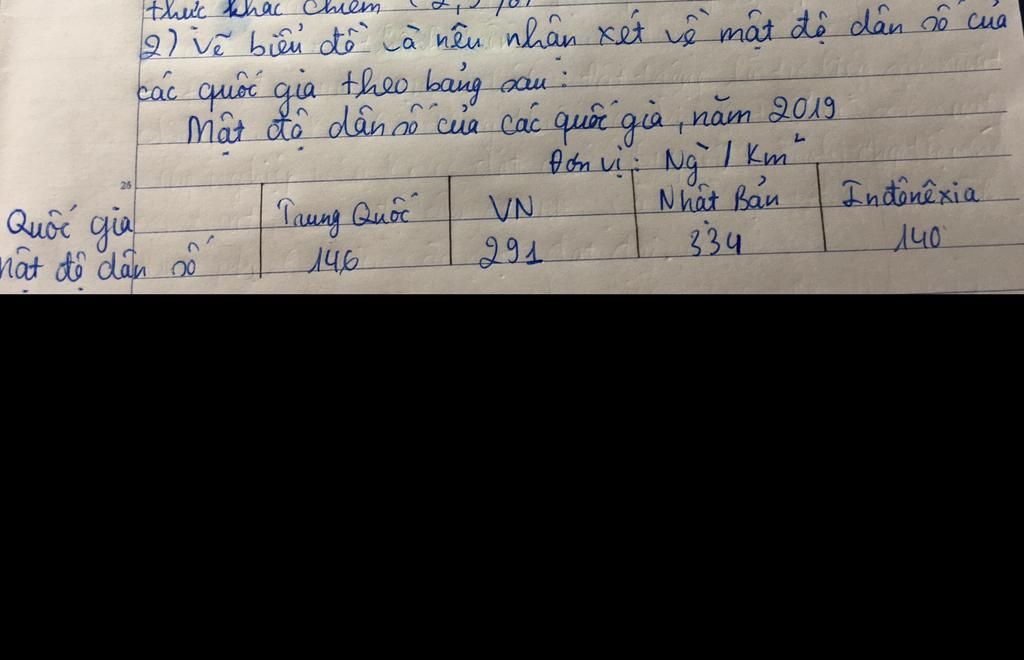 thức khác chiếm
2) Vẽ biểu đồ và nêu nhận xét về mật độ dân số của
các quốc gia theo bảng sau:
Mật độ dân số của các quốc gia, năm 2019
Đơn vị: Ng` / Km²
Quốc gia Trung Quốc VN Nhật Bản Inđônêxia
mật độ dân số 146 291 334 140